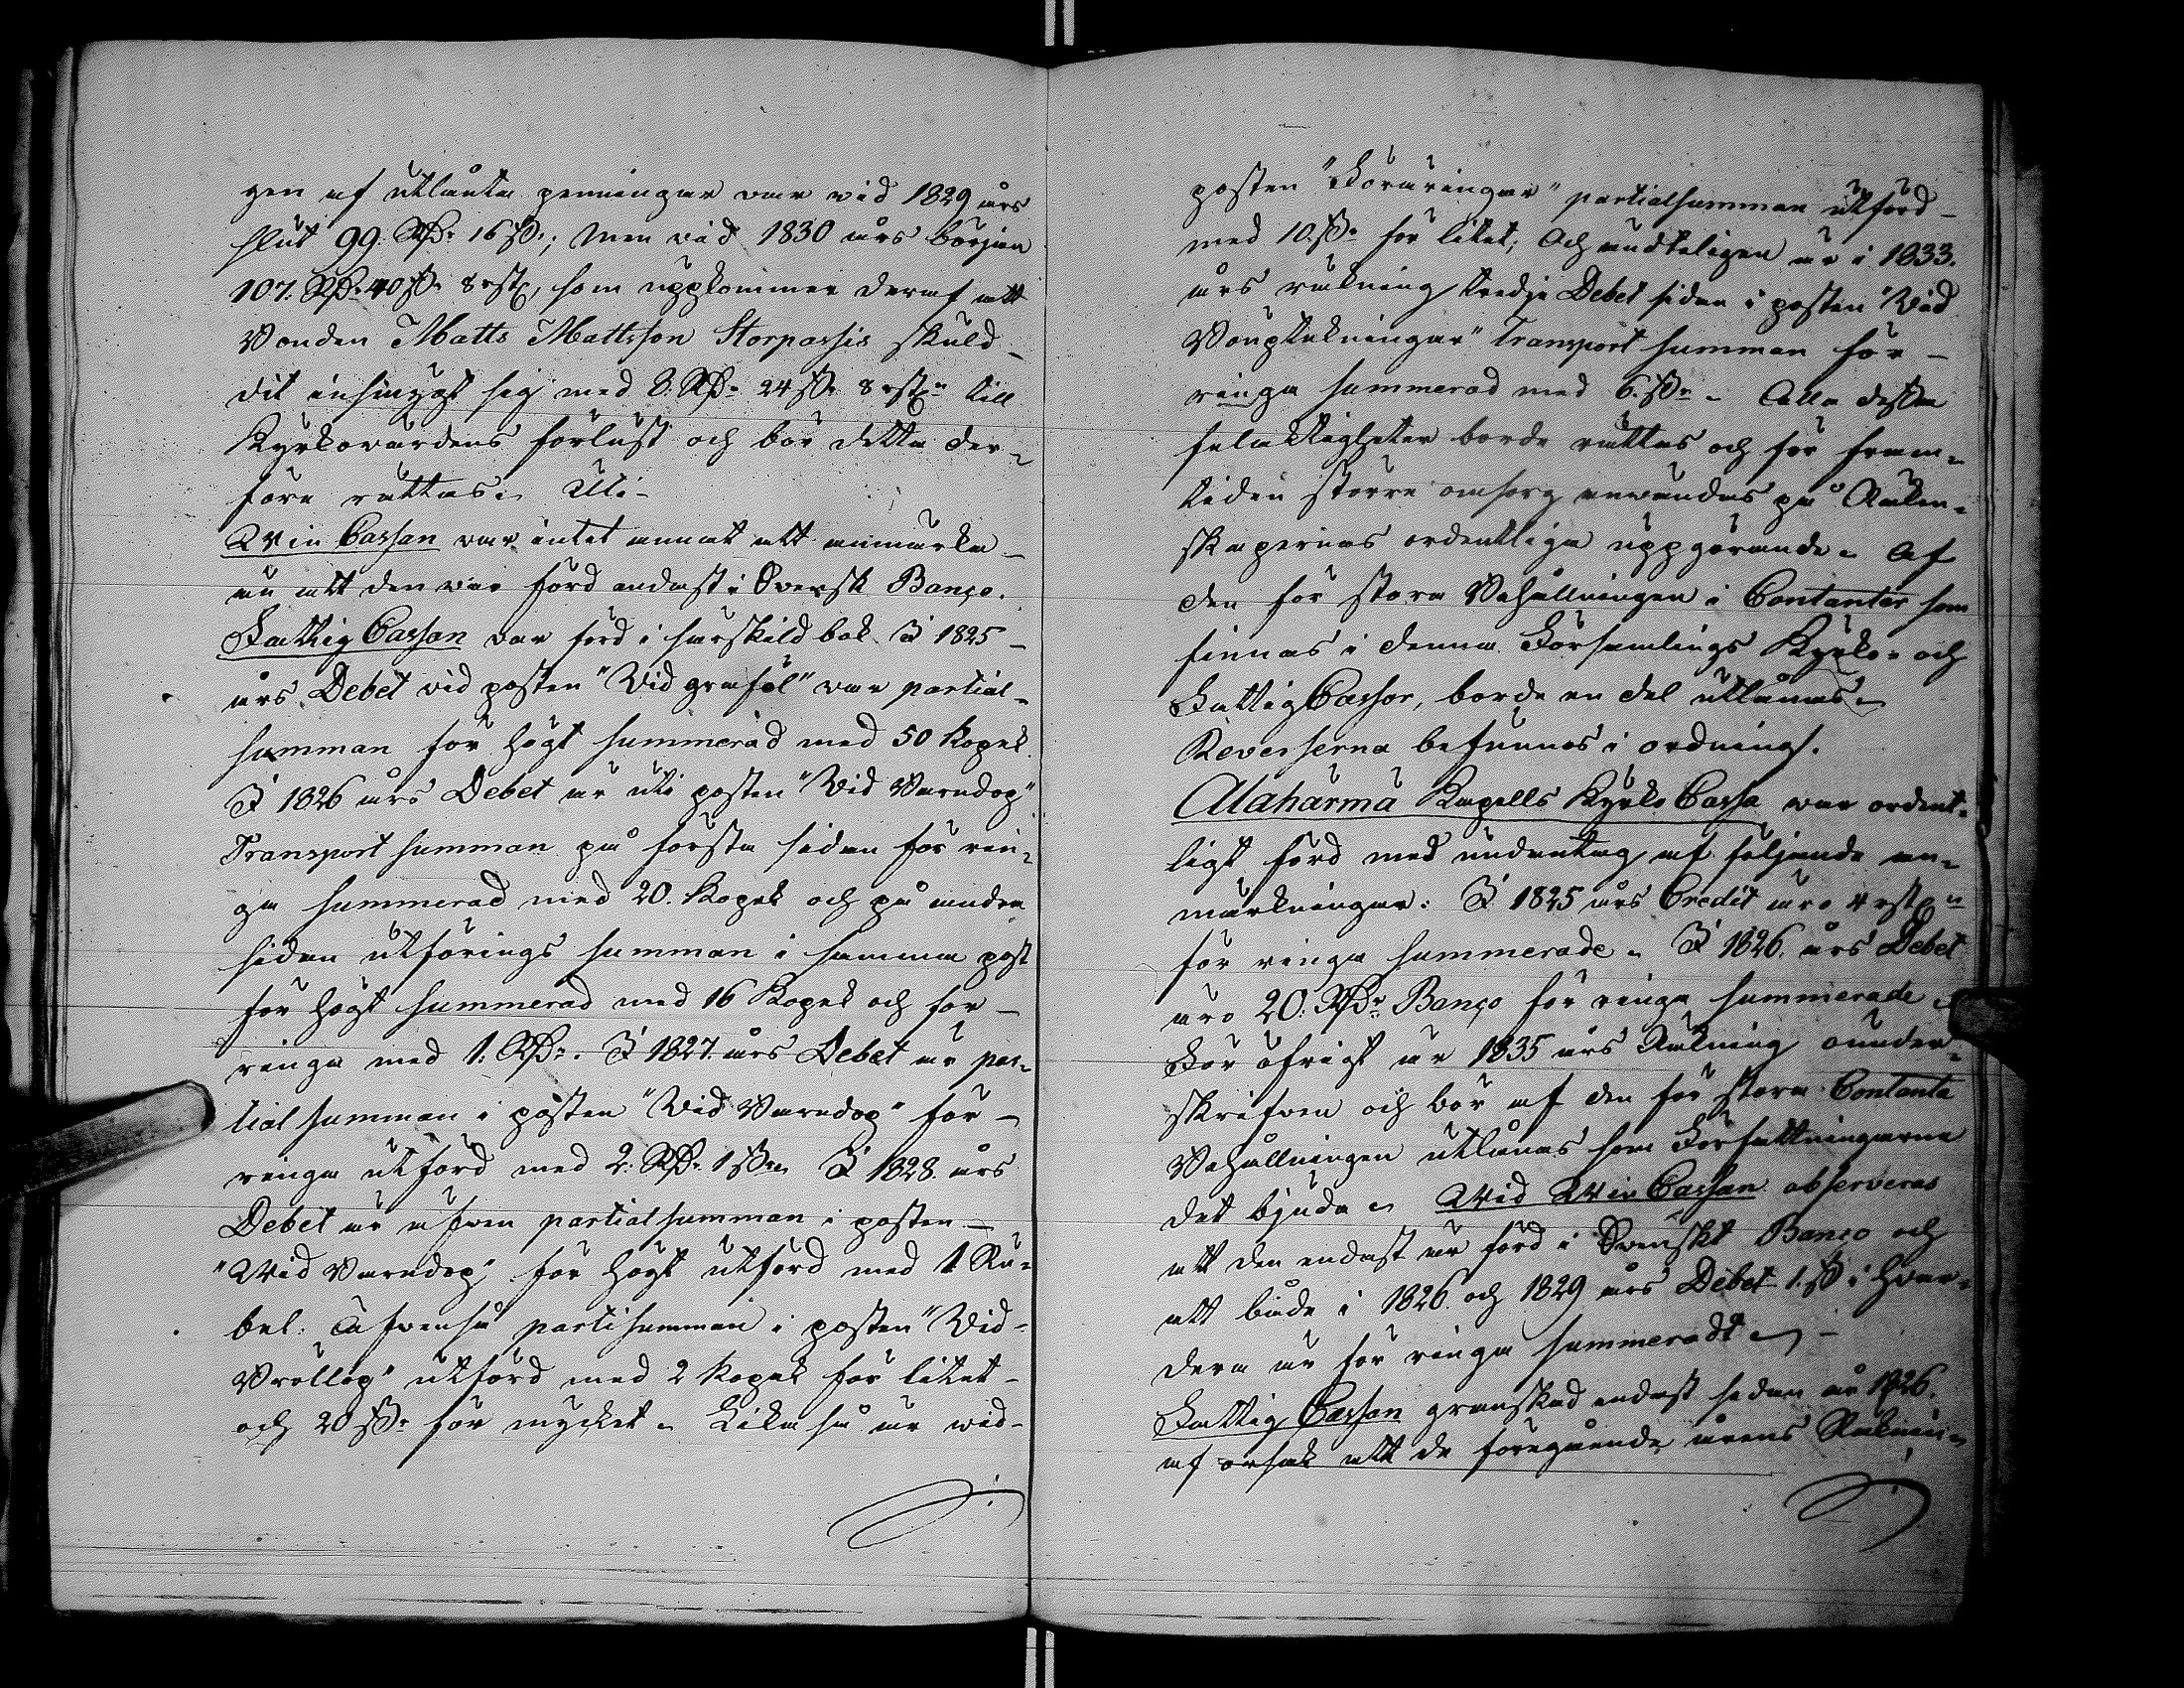 gen af utlånta penningar var vid 1829 års
slut 99. Rdr 16 sk.; Men vid 1830 års början
107. Rdr 40 sk. 8 rst, som uppkommer deraf att
Bonden Matts Mattsson Storpassis skuld
dit insmygt sig med 8. Rdr 24 sk. 8 rst. till
Kyrkovärdens förlust och bör detta der-
före rättas. Uti
Win Cassan var intet annat att anmärka
än att den var förd endast i Svensk Banco.
Fattig Cassan var förd i särskild bok. I 1825
års Debet vid posten "Vid graföl" var partial-
summan för högt summerad med 50 Kopek.
I 1826 års Debet är uti posten "Vid Barndop"
Transport summan på första sidan för rin-
ga summerad med 20. Kopek och på andra
sidan utförings summan i samma post
för högt summerad med 16 Kopek och för
ringa med 1. Rdr. I 1827. års Debet är par-
tial summan i posten "Vid Barndop" för
ringa utförd med 2. Rdr 1 sk. I 1828. års
Debet är äfven partialsumman i posten
"Wid Barndop" för högt utförd med 1 Ru-
bel. Äfvenså partisumman i posten "Vid
Bröllop" utförd med 2 Kopek för litet
och 20 sk. för mycket. Lika så är vid
posten "Föräringar" partialsumman utförd
med 10. sk. för litet; Och ändteligen är i 1833.
års räkning tredje Debet sidan i posten "Vid
Transport summan för
ringa summerad med 6. sk. Alla dessa
felaktigheter borde rättas och för fram-
tiden större omsorg användas på Räken-
skapernas ordentliga uppgörande. Af
den för stora Behållningen i Contanter som
finnas i denna Församlings Kyrko- och
Fattig Cassor, borde en del utlånas.
Reverserna befunnos i ordning.
Alahärmä Kapells Kyrko Cassa var ordent-
ligt förd med undantag af följande an-
märkningar: I 1825 års Credit äro 4 rst.
för ringa summerade. I 1826. års Debet
äro 20. Rdr Banco för ringa summerade.
För öfrigt är 1835 års Räkning ounder-
skrifven och bör af den för stora Contanta
Behållningen utlånas som Författningarne
det bjuda. Wid Win Cassan observeras
att den endast är förd i Svenskt Banco och
att både i 1826. och 1829 års Debet 1. sk i hvar-
dera är för ringa summeradt.
Fattig Cassan granskad endast sedan år 1826.
af orsak att de föregående årens Räknin-